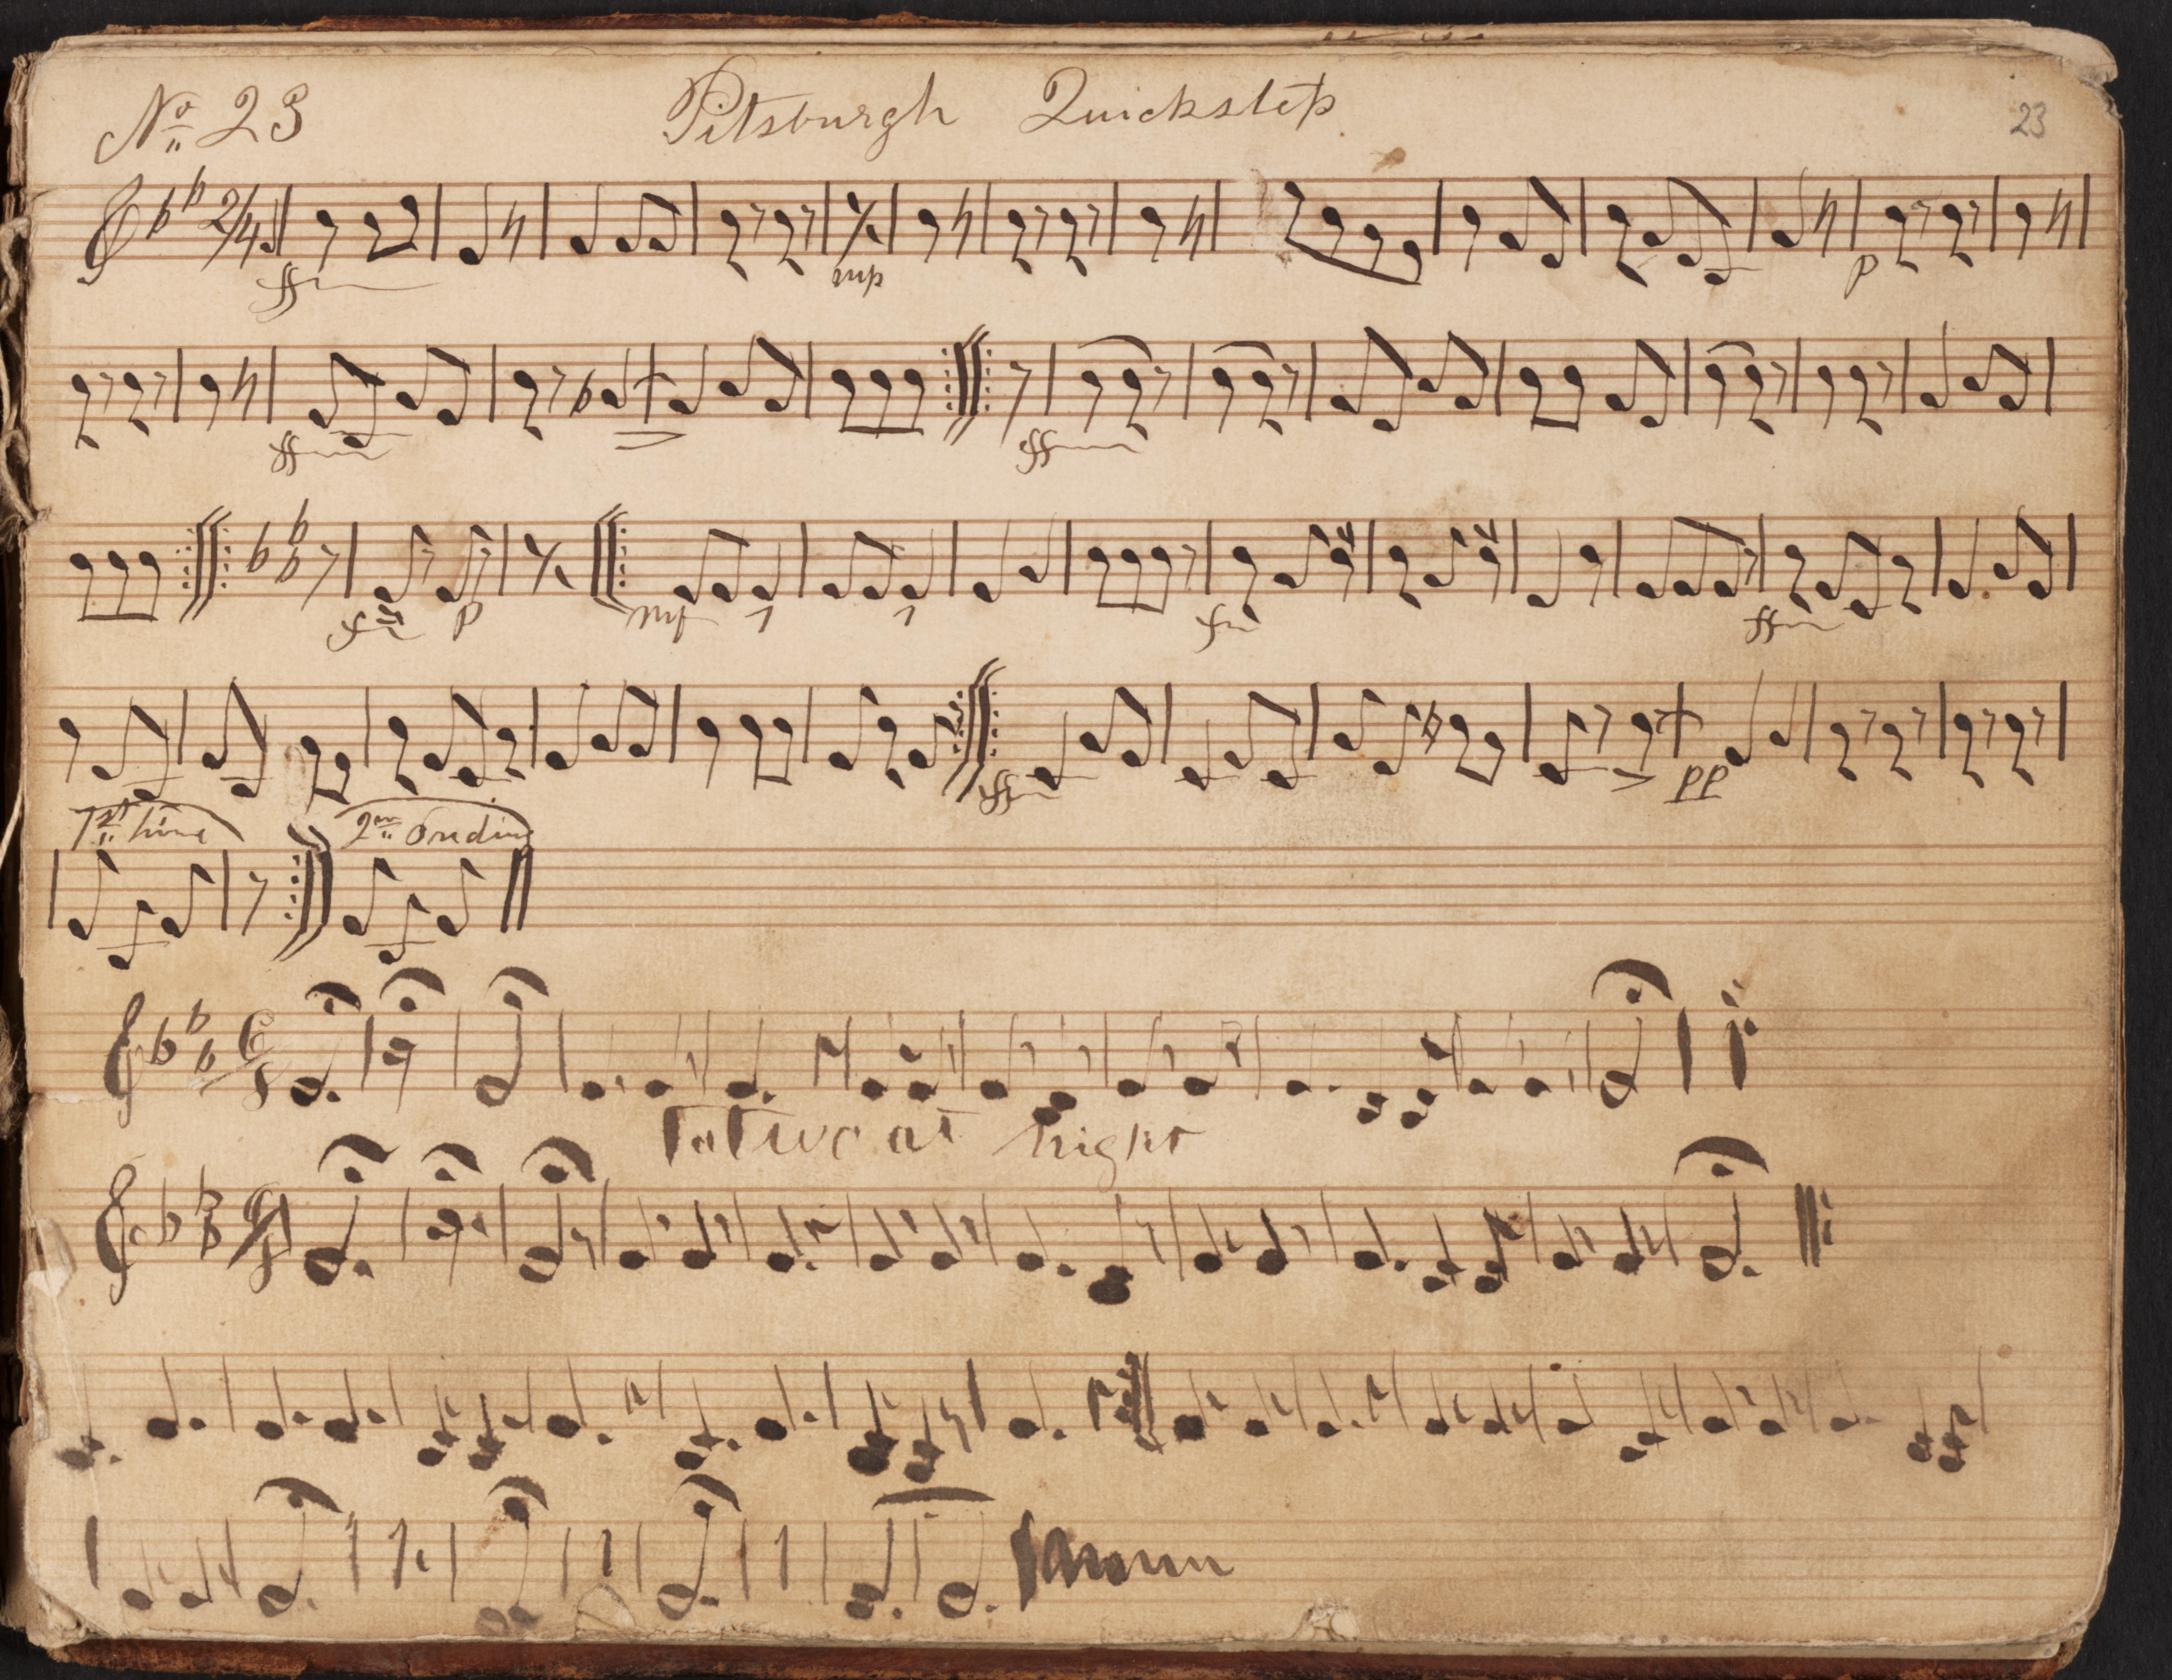 No 23 Pitsburgh Quickstep 23
2/4
ff
mp p
ff ff
ff p mf f ff
ff pp
1st time 2nd Ending
Tattwo at night